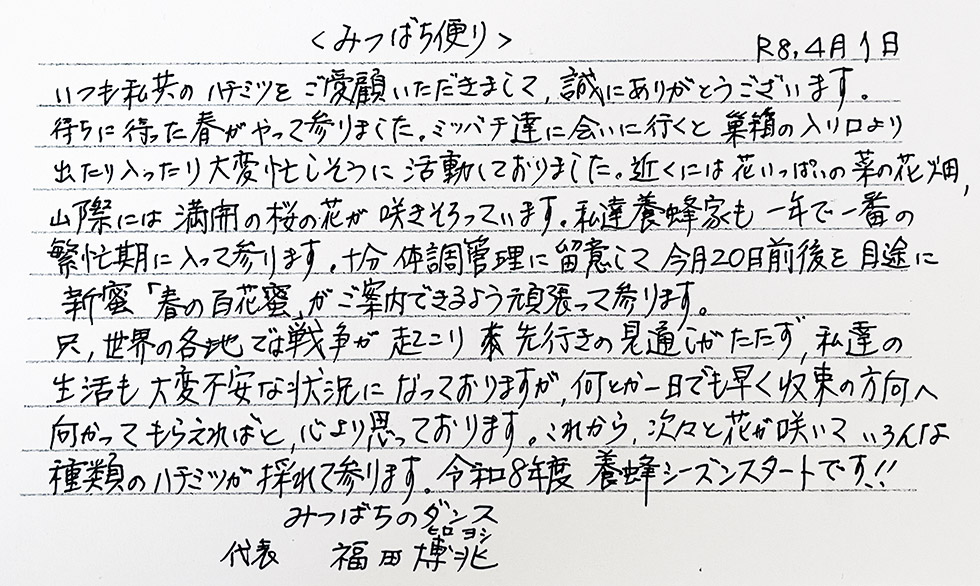 <みつばち便り>
R8,4月1日
いつも私共のハチミツをご愛顧いただきまして、誠にありがとうございます。
待ちに待った春がやって参りました。ミツバチ達に会いに行くと巣箱の入り口より
出たり入ったり大変忙しそうに活動しておりました。近くには花いっぱいの菜の花畑、
山際には満開の桜の花が咲きそろっています。私達養蜂家も一年で一番の
繁忙期に入って参ります。十分体調管理に留意して今月20日前後を目途に
新蜜「春の百花蜜」がご案内できるよう頑張って参ります。
只、世界の各地では戦争が起こり 先行きの見通しがたたず、私達の
生活も大変不安な状況になっておりますが、何とか一日でも早く収束の方向へ
向かってもらえればと、心より思っております。これから、次々と花が咲いていろんな
種類のハチミツが採れて参ります。令和8年度 養蜂シーズンスタートです!!
みつばちのダンス
ヒロヨシ
代表 福田博兆